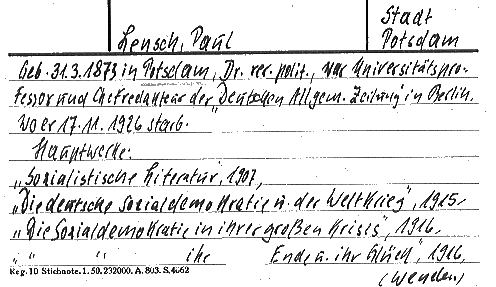 Lensch, Paul
Stadt
Potsdam
Geb. 31.3.1873 in Potsdam, Dr. rer. polit., war Universitätspro-
fessor und Chefredakteur der „Deutschen Allgem. Zeitung" in Berlin.
wo er 17.11.1926 starb.
Hauptwerke:
„Sozialistische Literatur", 1907,
„Die deutsche Sozialdemokratie u. der Weltkrieg", 1915.
„Die Sozialdemokratie in ihrer großen Krisis", 1916.
„ „ „ ihr Ende u. ihr Glück", 1916,
Reg. 10 Stichnote. 1. 50. 232000. A. 803. S. 4662
(wenden)